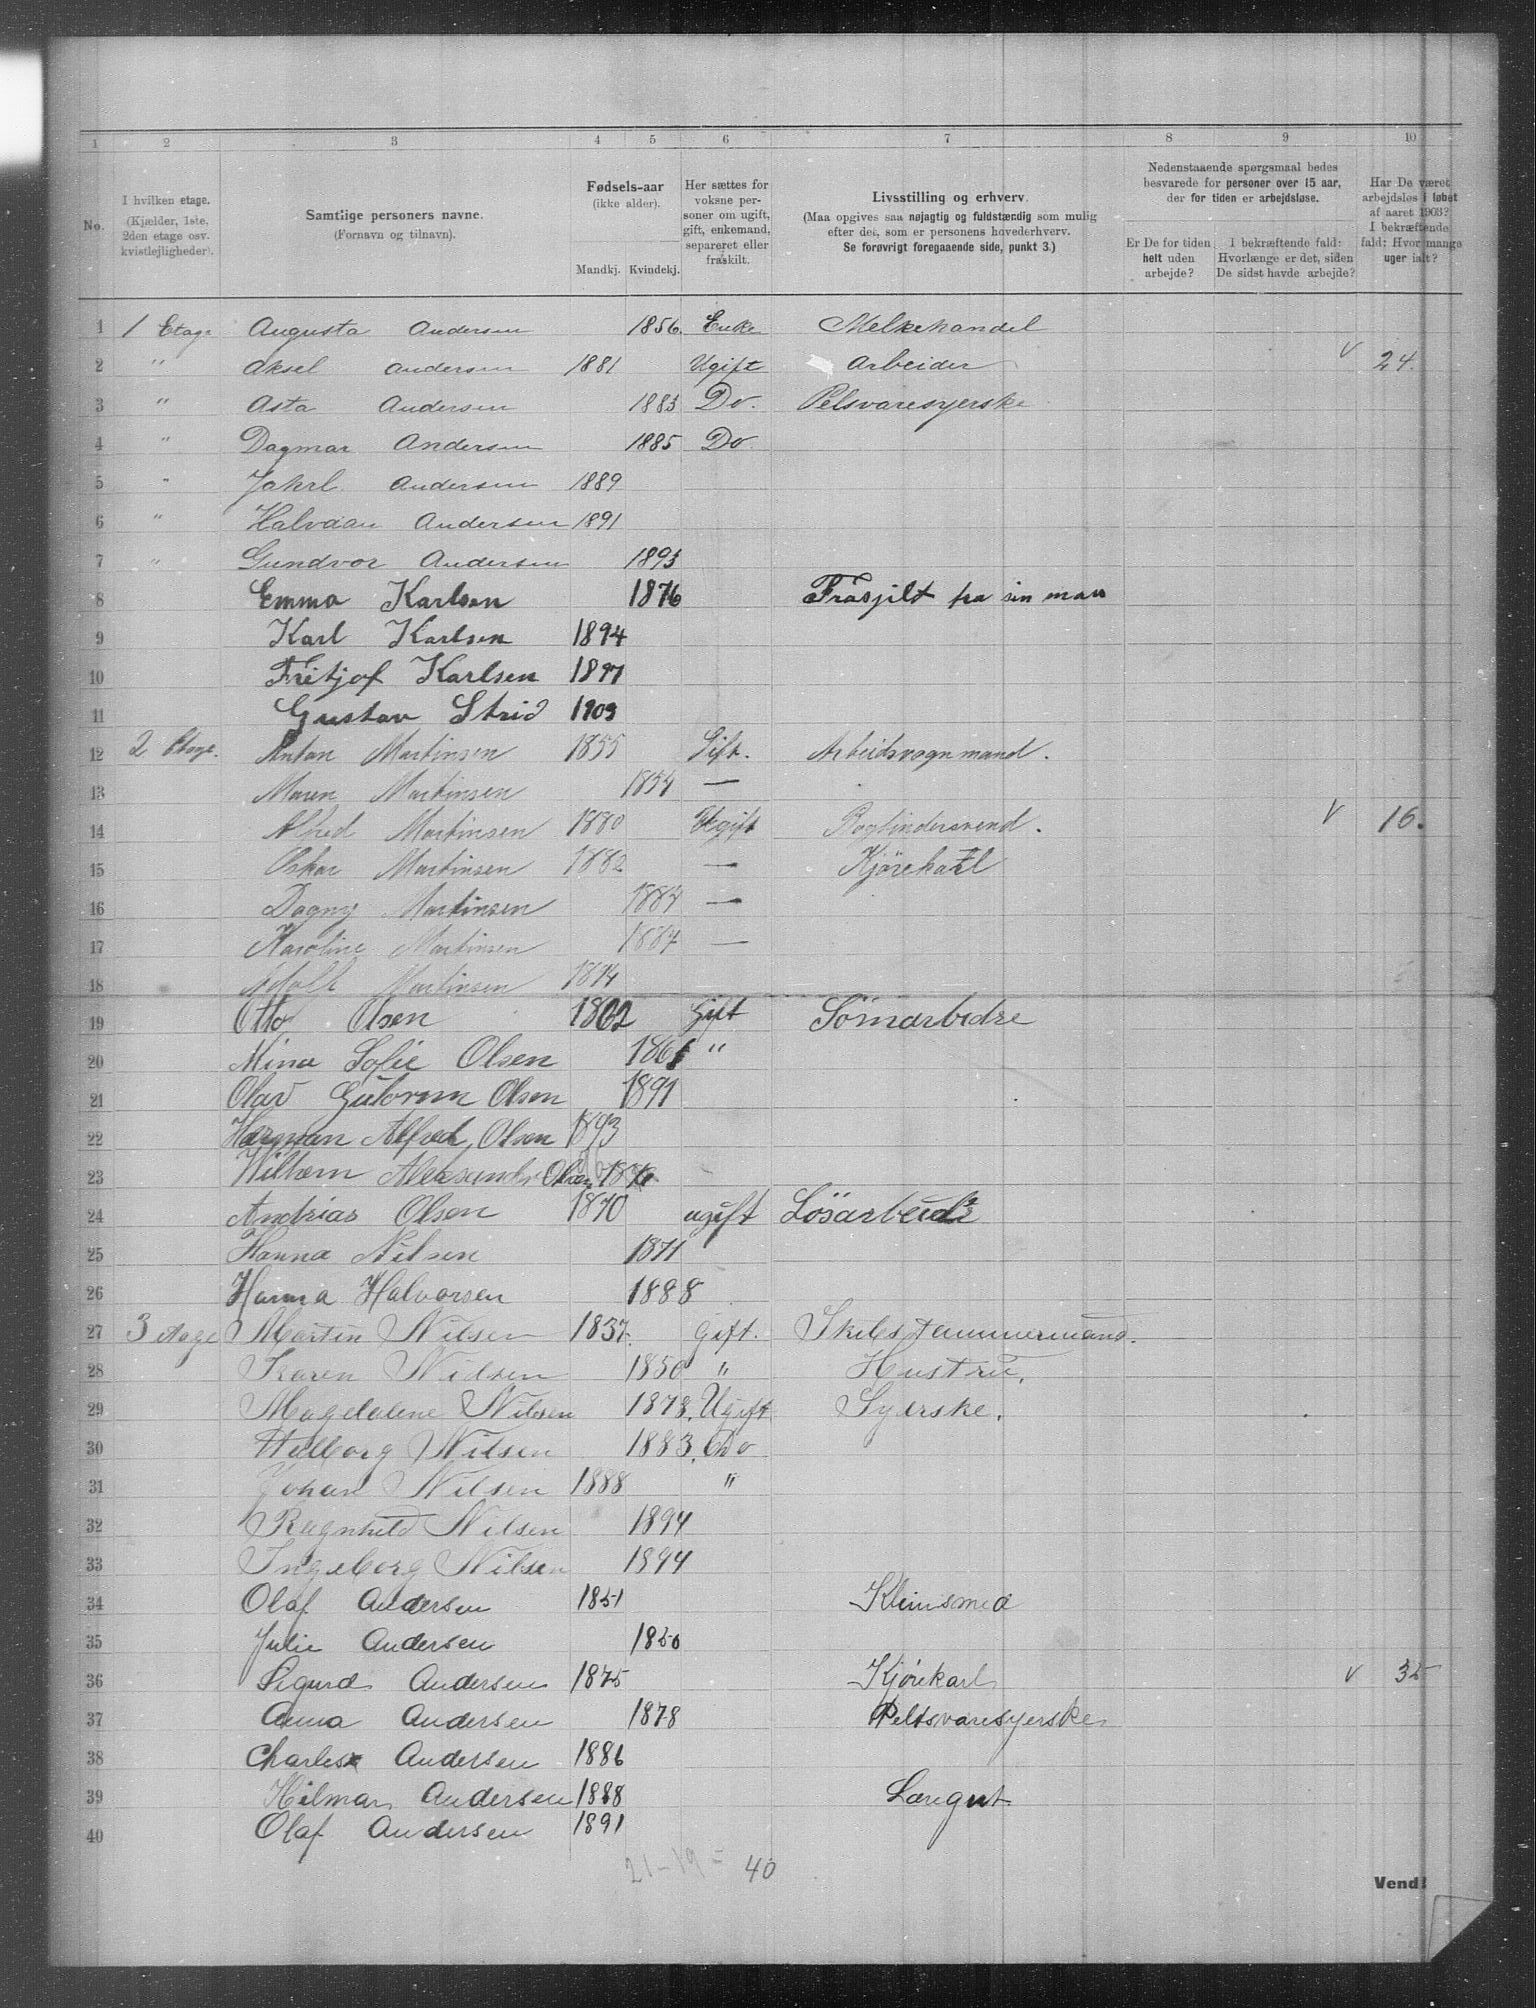 1 2 3 4 5 6 7 8 9 10
No.
I hvilken etage.
(Kjælder, 1ste,
2den etage osv.
kvistlejligheder).
Samtlige personers navne.
(Fornavn og tilnavn).
Fødsels-aar
(ikke alder).
Mandkj. Kvindekj.
Her sættes for
voksne per-
soner om ugift,
gift, enkemand,
separeret eller
fraskilt.
Livsstilling og erhverv.
(Maa opgives saa nøjagtig og fuldstændig som mulig
efter det, som er personens hovederhverv.
Se forøvrigt foregaaende side, punkt 3.)
Nedenstaaende spørgsmaal bedes
besvarede for personer over 15 aar,
der for tiden er arbejdsløse.
Er De for tiden
helt uden
arbejde?
I bekræftende fald:
Hvorlænge er det, siden
De sidst havde arbejde?
Har De været
arbejdsløs i løbet
af aaret 1903?
I bekræftende
fald: Hvor mange
uger ialt?
1 1 Etage Augusta Andersen 1856. Enke Melkehandel
2 " Aksel Andersen 1881 Ugift Arbeider v 24.
3 " Asta Andersen 1883 Do. Pelsvaresyerske
4 " Dagmar Andersen 1885 Do
5 " Jahrl Andersen 1889
6 " Halvdan Andersen 1891
7 " Gundvor Andersen 1893
8 Emma Karlsen 1876 Frasjilt fra sin man
9 Karl Karlsen 1894
10 Fritjof Karlsen 1897
11 Gustav Strid 1903
12 2 Etage. Anton Martinsen 1855 Gift. Arbeidsvognmand.
13 Maren Martinsen 1854 —
14 Alfred Martinsen 1880 Ugift Bogbindersvend. v 16.
15 Oskar Martinsen 1882 — Kjørekarl
16 Dagny Martinsen 1884 —
17 Karoline Martinsen 1887 —
18 Adolf Martinsen 1894
19 Otto Olsen 1862 Gift Sömarbedre
20 Mina Sofie Olsen 1861 "
21 Olav Gutorm Olsen 1891
22 Herman Alfred Olsen 1893
23 Wilhem Aleksander Olsen
24 Andrias Olsen 1870 ugift Lösarbeide
25 Hanna Nilsen 1871
26 Hanna Halvorsen 1888
27 3 etage Martin Nilsen 1837. gift. Skibstømmermand.
28 Karen Nielsen 1850 " Hustru.
29 Magdalene Nilsen 1878. Ugift Syerske.
30 Valborg Nilsen 1883. Do
31 Johan Nilsen 1888 "
32 Ragnhild Nilsen 1894
33 Ingeborg Nilsen 1894
34 Olaf Andersen 1851 Kleinsmed
35 Julie Andersen 1850
36 Sigurd Andersen 1875 Kjørekarl v 35
37 Anna Andersen 1878 Peltsvaresyerske
38 Charles Andersen 1886
39 Hilmar Andersen 1888 Læregut
40 Olaf Andersen 1891
21-19 = 40
Vend!